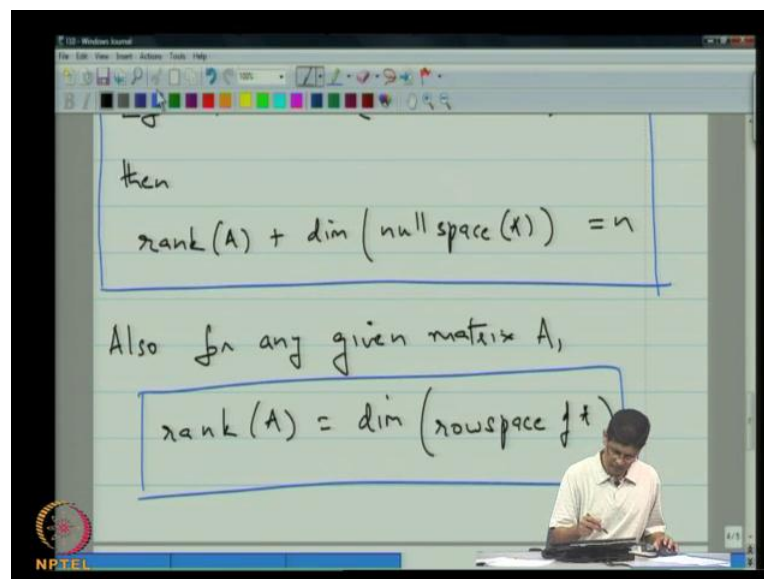 110 - Windows Journal
File Edit View Insert Actions Tools Help
100%
B I
then
rank (A) + dim ( null space (A) ) = n
Also for any given matrix A,
rank (A) = dim ( rowspace of A )
4/5
NPTEL